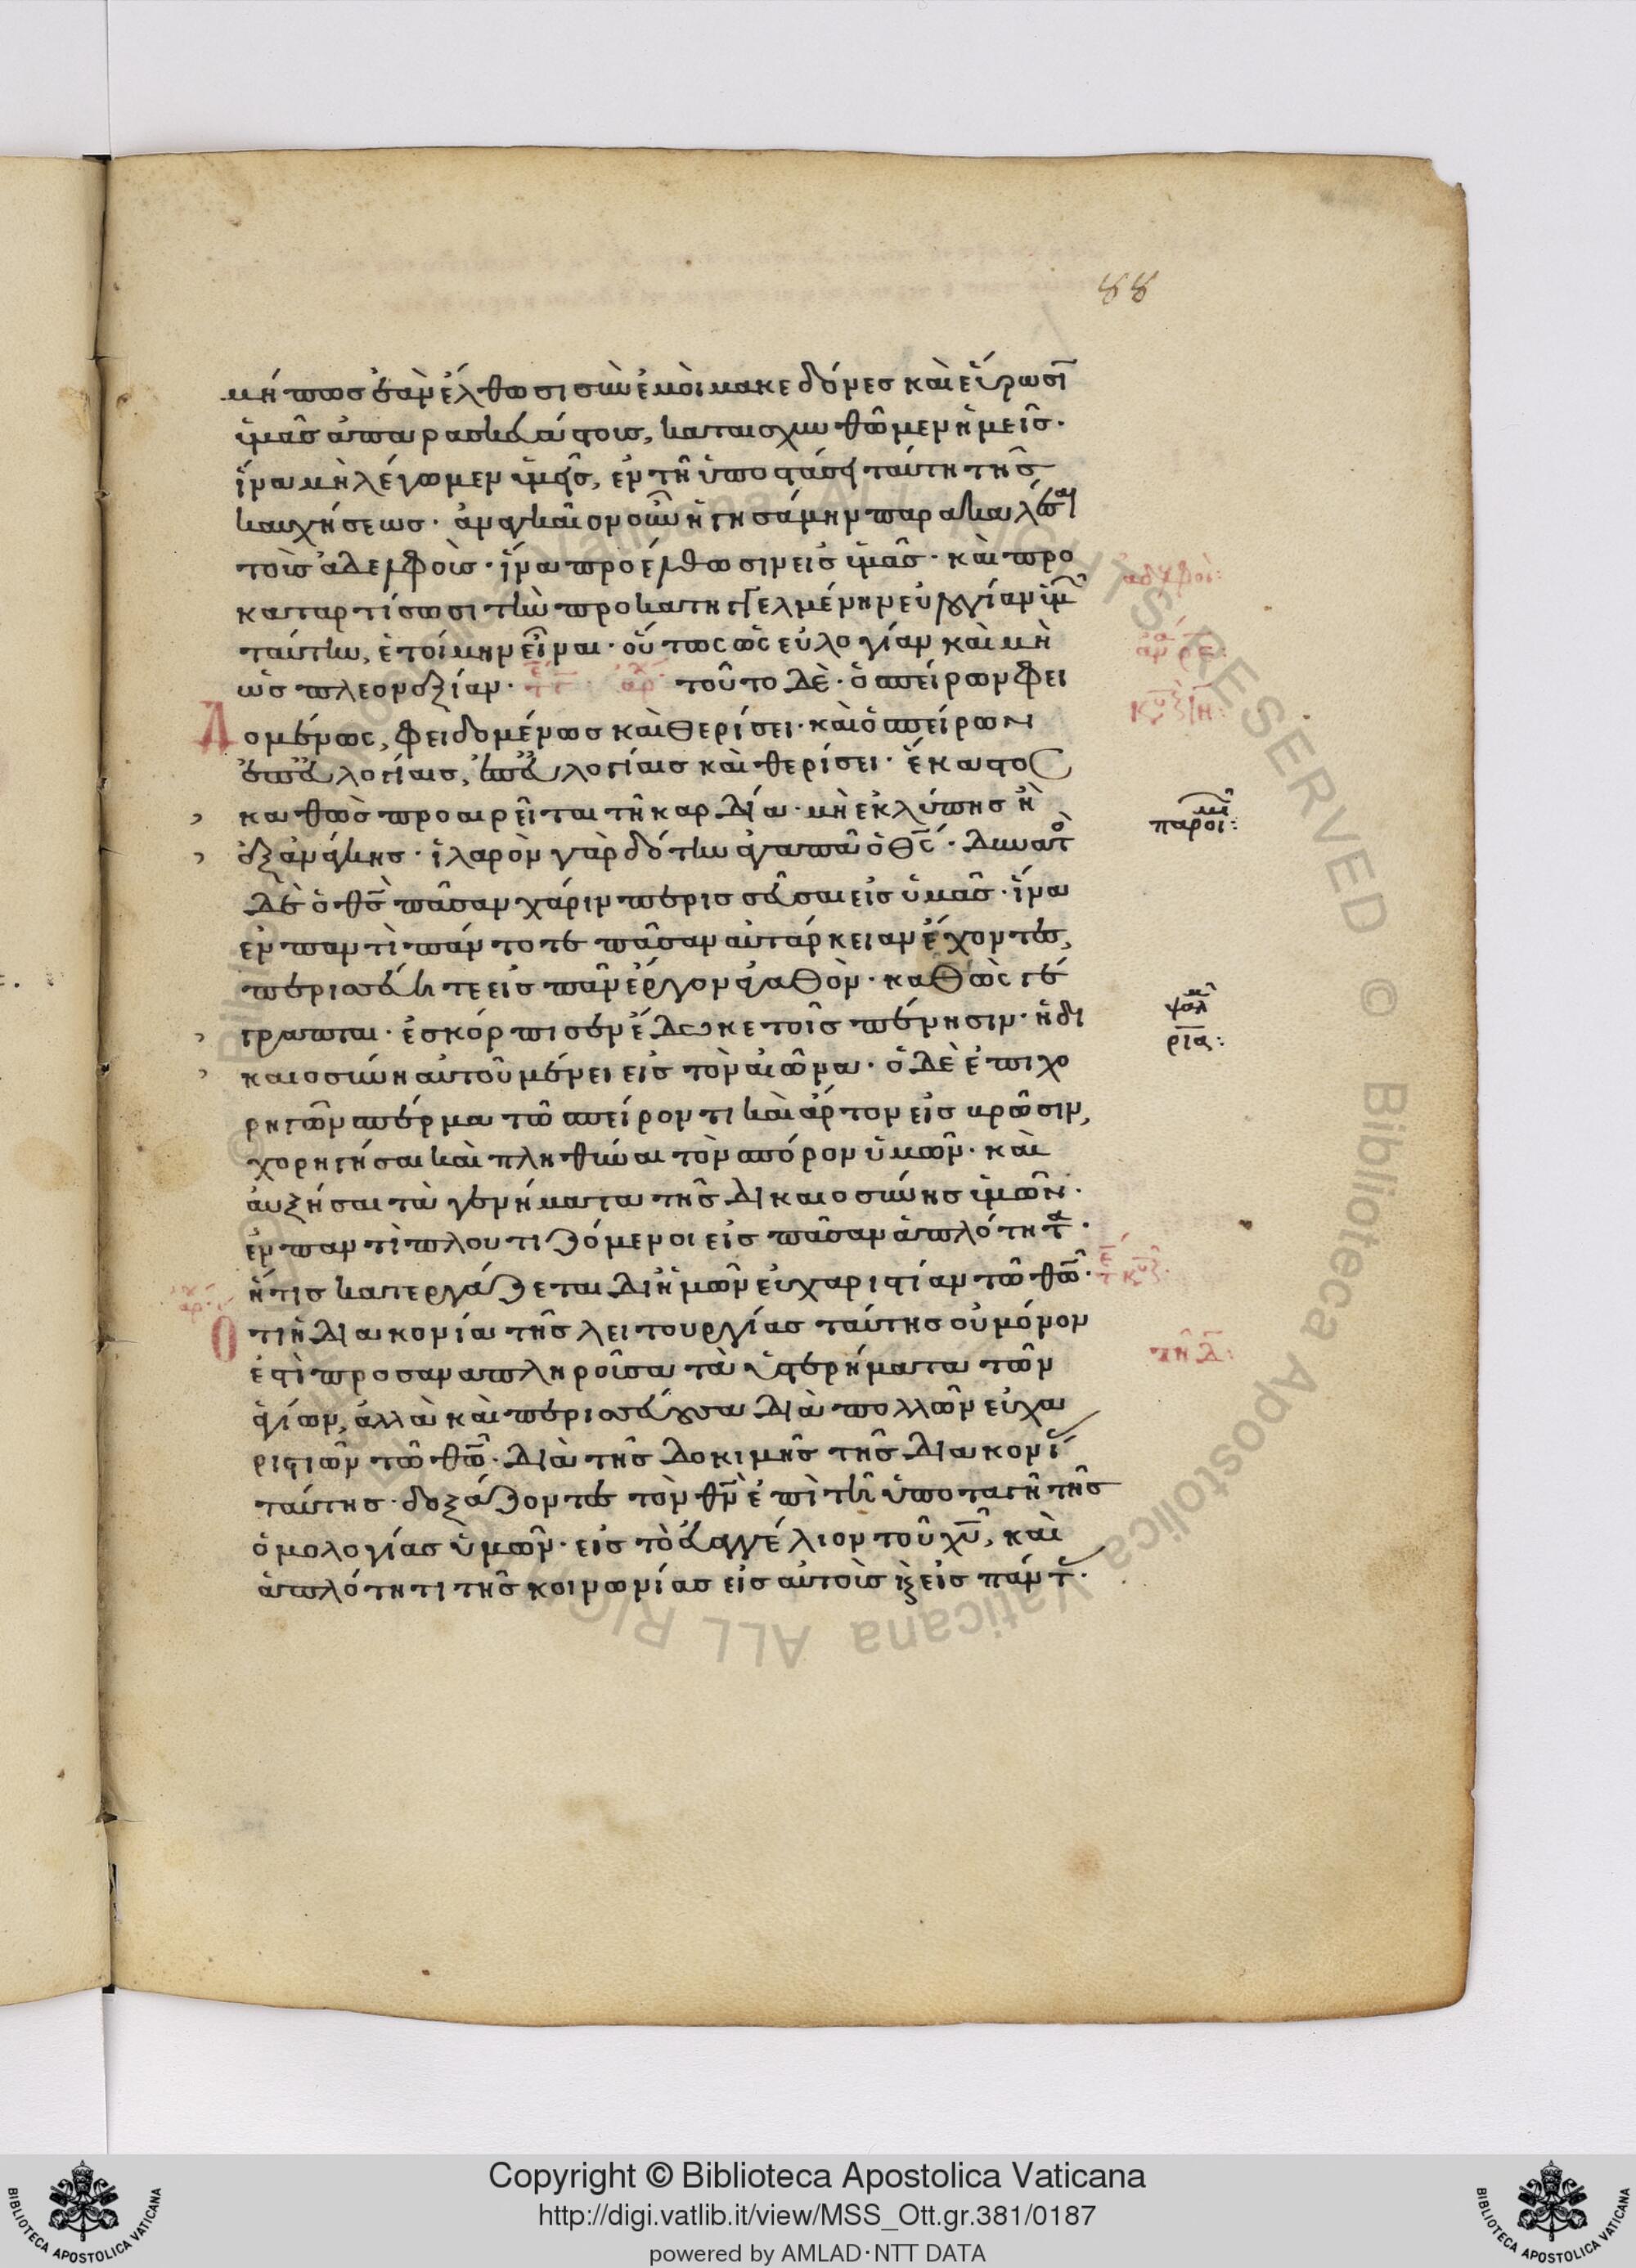 88
μή πως ἐὰν ἔλθωσι σὺν ἐμοὶ μακεδόνες καὶ εὕρωσῑ
ὑμᾶς ἀπαρασκευάστους, καταισχυνθῶμεν ἡμεῖς·
ἵνα μὴ λέγωμεν ὑμεῖς, ἐν τῆ ὑποστάσει ταύτη τῆς
καυχήσεως· ἀναγκαῖον οὖν ἡγησάμην παρακαλέσαι
τοὺς ἀδελφοὺς· ἵνα προέλθωσιν εἰς ὑμᾶς· καὶ προ
καταρτίσωσι τὴν προκατηγγελμένην εὐλογίαν ὑμ
ταύτην, ἑτοίμην εἶναι· οὕτως ὡς εὐλογίαν καὶ μὴ
ὡς πλεονεξίαν· τε αρ τοῦτο δὲ· ὁ σπείρων φει
δομένως, φειδομένως καὶ θερίσει· καὶ ὁ σπείρων
ἐπ εὐλογίαις, ἐπ εὐλογίαις καὶ θερίσει· ἕκαστος
καθὼς προαιρεῖται τῆ καρδία· μὴ ἐκ λύπης ἢ
ἐξ ἀνάγκης· ἱλαρὸν γὰρ δότην ἀγαπᾶ ὁ θς· δυνατὸ
δὲ ὁ θς πᾶσαν χάριν περισσεῦσαι εἰς ὑμᾶς· ἵνα
ἐν παντὶ πάντοτε πᾶσαν αὐτάρκειαν ἔχοντες,
περισσεύητε εἰς πᾶν ἔργον ἀγαθὸν· καθὼς γέ
γραπται· ἐσκόρπισεν ἔδωκε τοῖς πένησιν· ἡ δι
καιοσύνη αὐτοῦ μένει εἰς τὸν αἰῶνα· ὁ δὲ ἐπιχο
ρηγῶν σπέρμα τῶ σπείροντι καὶ ἄρτον εἰς βρῶσιν,
χορηγήσαι καὶ πληθύναι τὸν σπόρον ὑμῶν· καὶ
ἀυξήσαι τὰ γενήματα τῆς δικαιοσύνης ὑμῶν·
ἐν παντὶ πλουτιζόμενοι εἰς πᾶσαν ἁπλότητα·
ἥτις κατεργάζεται δι ἡμῶν εὐχαριστίαν τῶ θῶ·
ὅτι ἡ διακονία τῆς λειτουργίας ταύτης οὐ μόνον
ἐστὶ προσαναπληροῦσα τὰ ὑστερήματα τῶν
ἁγίων, ἀλλὰ καὶ περισσεύουσα διὰ πολλῶν εὐχα
ριστιῶν τῶ θῶ· διὰ τῆς δοκιμῆς τῆς διακονί
ταύτης· δοξάζοντες τὸν θν ἐπὶ τῆ ὑποταγῆ τῆς
ὁμολογίας ὑμῶν· εἰς τὸ εὐαγγέλιον τοῦ χυ, καὶ
ἁπλότητι τῆς κοινωνίας εἰς αὐτοὺς κ εἰς πάντ·
παροι:
ψαλ
ρια:
Copyright © Biblioteca Apostolica Vaticana
http://digi.vatlib.it/view/MSS_Ott.gr.381/0187
powered by AMLAD·NTT DATA
BIBLIOTECA APOSTOLICA VATICANA
BIBLIOTECA APOSTOLICA VATICANA